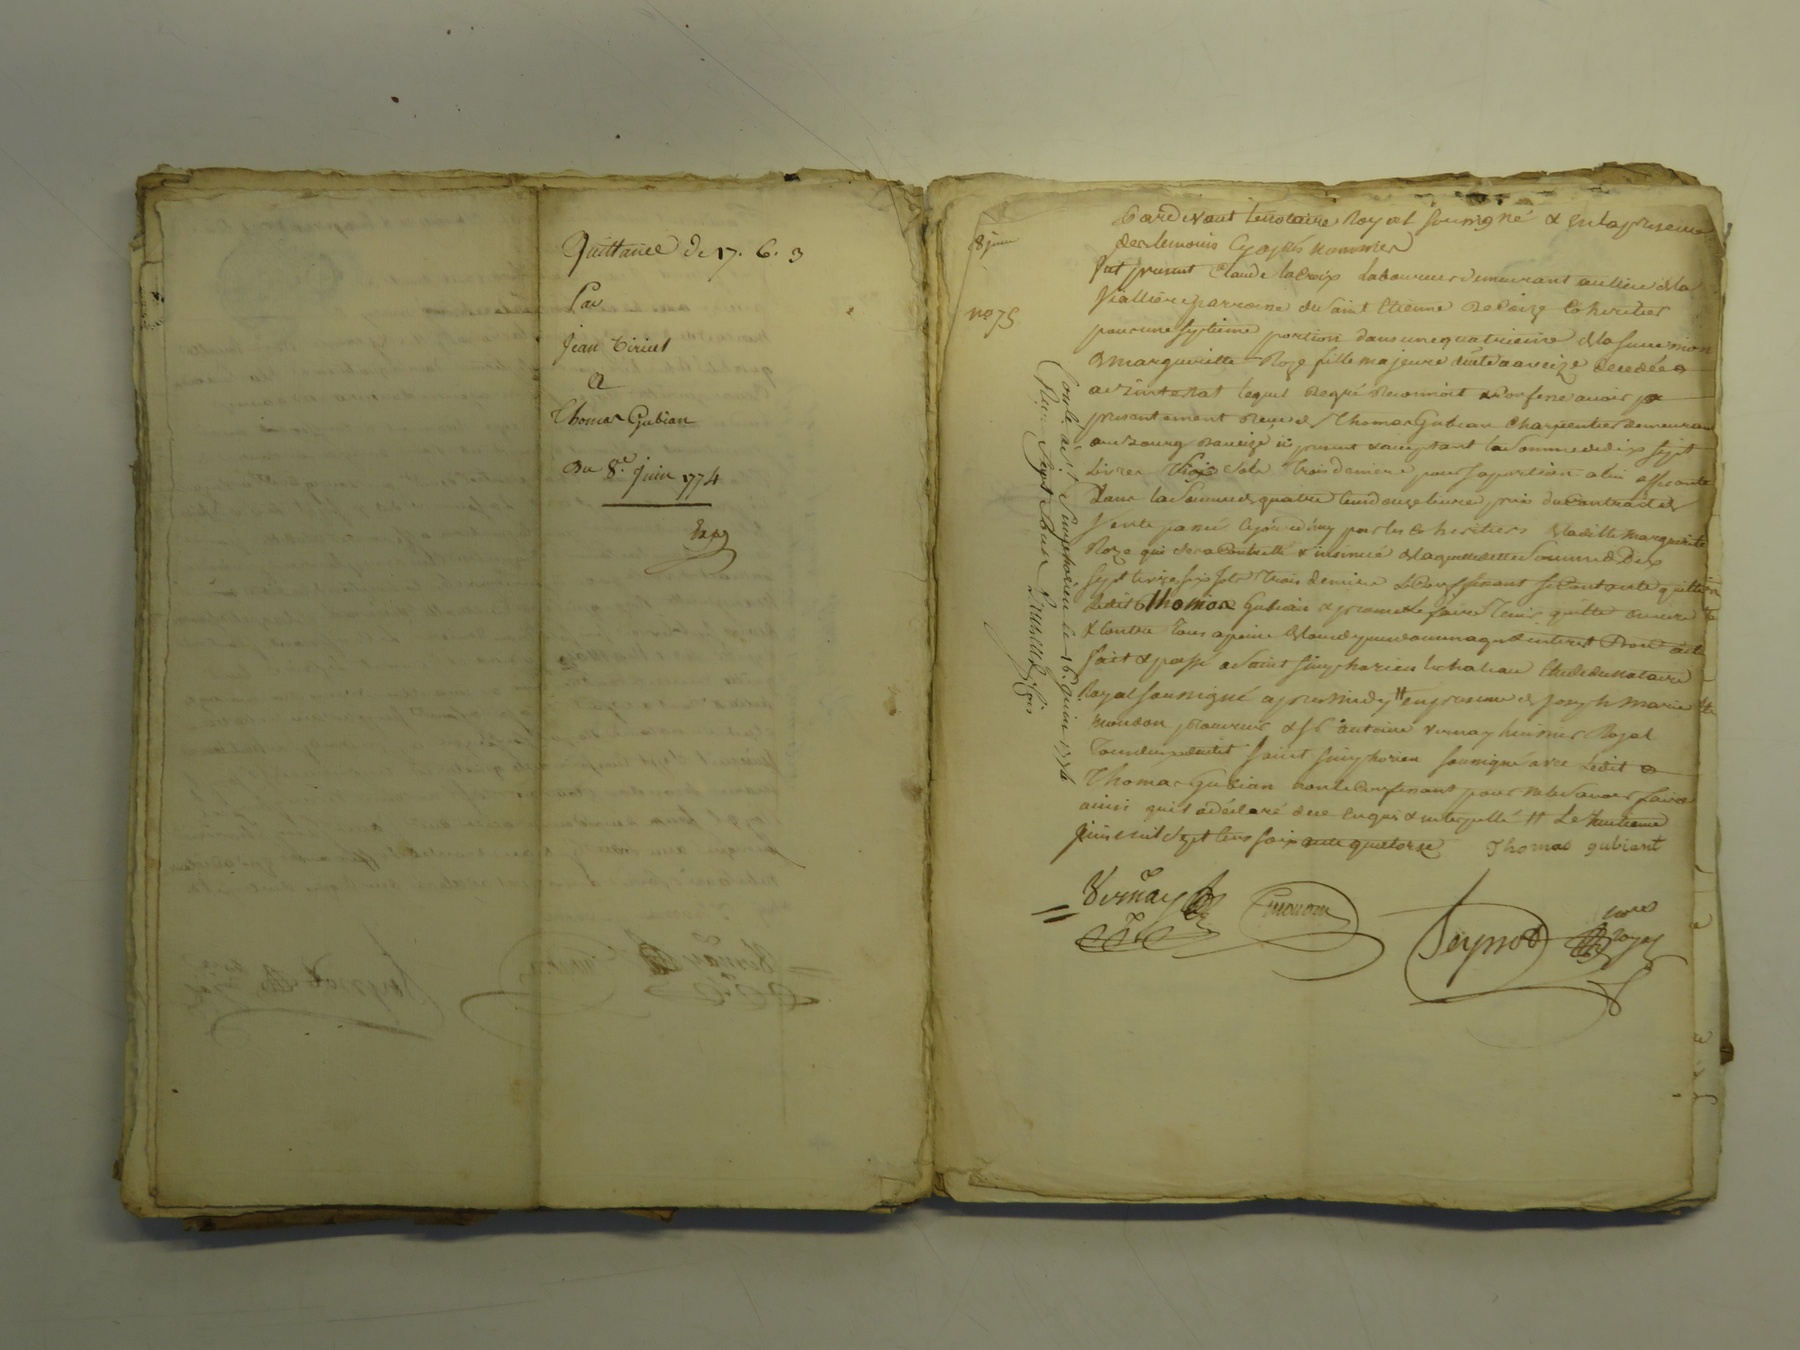 Quittance de 17. 6. 3
Par
Jean Tiriet
A
Thomas Gubian
Du 8.e Juin 1774
Exp
8 juin
no 75
Pardevant le notaire Royal soussigné & en la presence
des temoins cy apres nommés
fut present Claude Lacroix Laboureur demeurant au lieu de la
Viallière parroisse de Saint Etienne Coheritier
pour une septieme portion dans une quatrieme de la succession
de Margueritte Roze fille majeure decedée
ab intestat lequel de gré Reconnoit & Confesse avoir
presentement Receu de Thomas Gubian Charpentier demeurant
au Bourg present & acceptant la somme de dix sept
Livres sols trois deniers pour sa portion a lui afferante
Dans la somme de quatre cent douze livres prix du Contrat de
Vente passé par les Coheritiers de laditte Marguerite
Roze qui sera Controllé & insinué de laquelle ditte somme de Dix
sept livres six sols trois deniers Le Confessant se Contente quitte
Ledit Thomas Gubian & promet le faire Tenir quitte envers
& Contre Tous a peine de tous depens dommages & interets
fait & passé a Saint Simphorien le chateau Etude du notaire
Royal soussigné apres midy # en presence de Joseph Marie
& Sr antoine Vernay huissier Royal
dudit Saint Simphorien soussignés avec Ledit
Thomas Gubian non le Confessant pour ne le savoir faire
ainsi qu'il a déclaré de ce Enquis & interpellé # Le huitieme
Juin mil sept cens soixante quatorze Thomas gubiant
Vernay
Seyssot
no.re Royal
Controllé à St Simphorien le 16. Juin 1774
Reçu Sept sols